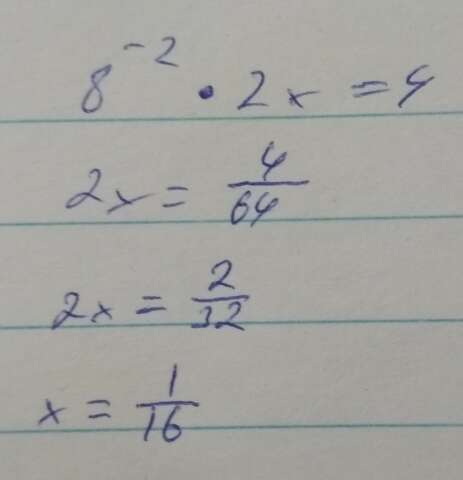 8⁻² · 2x = 4
2x = 4/64
2x = 2/32
x = 1/16